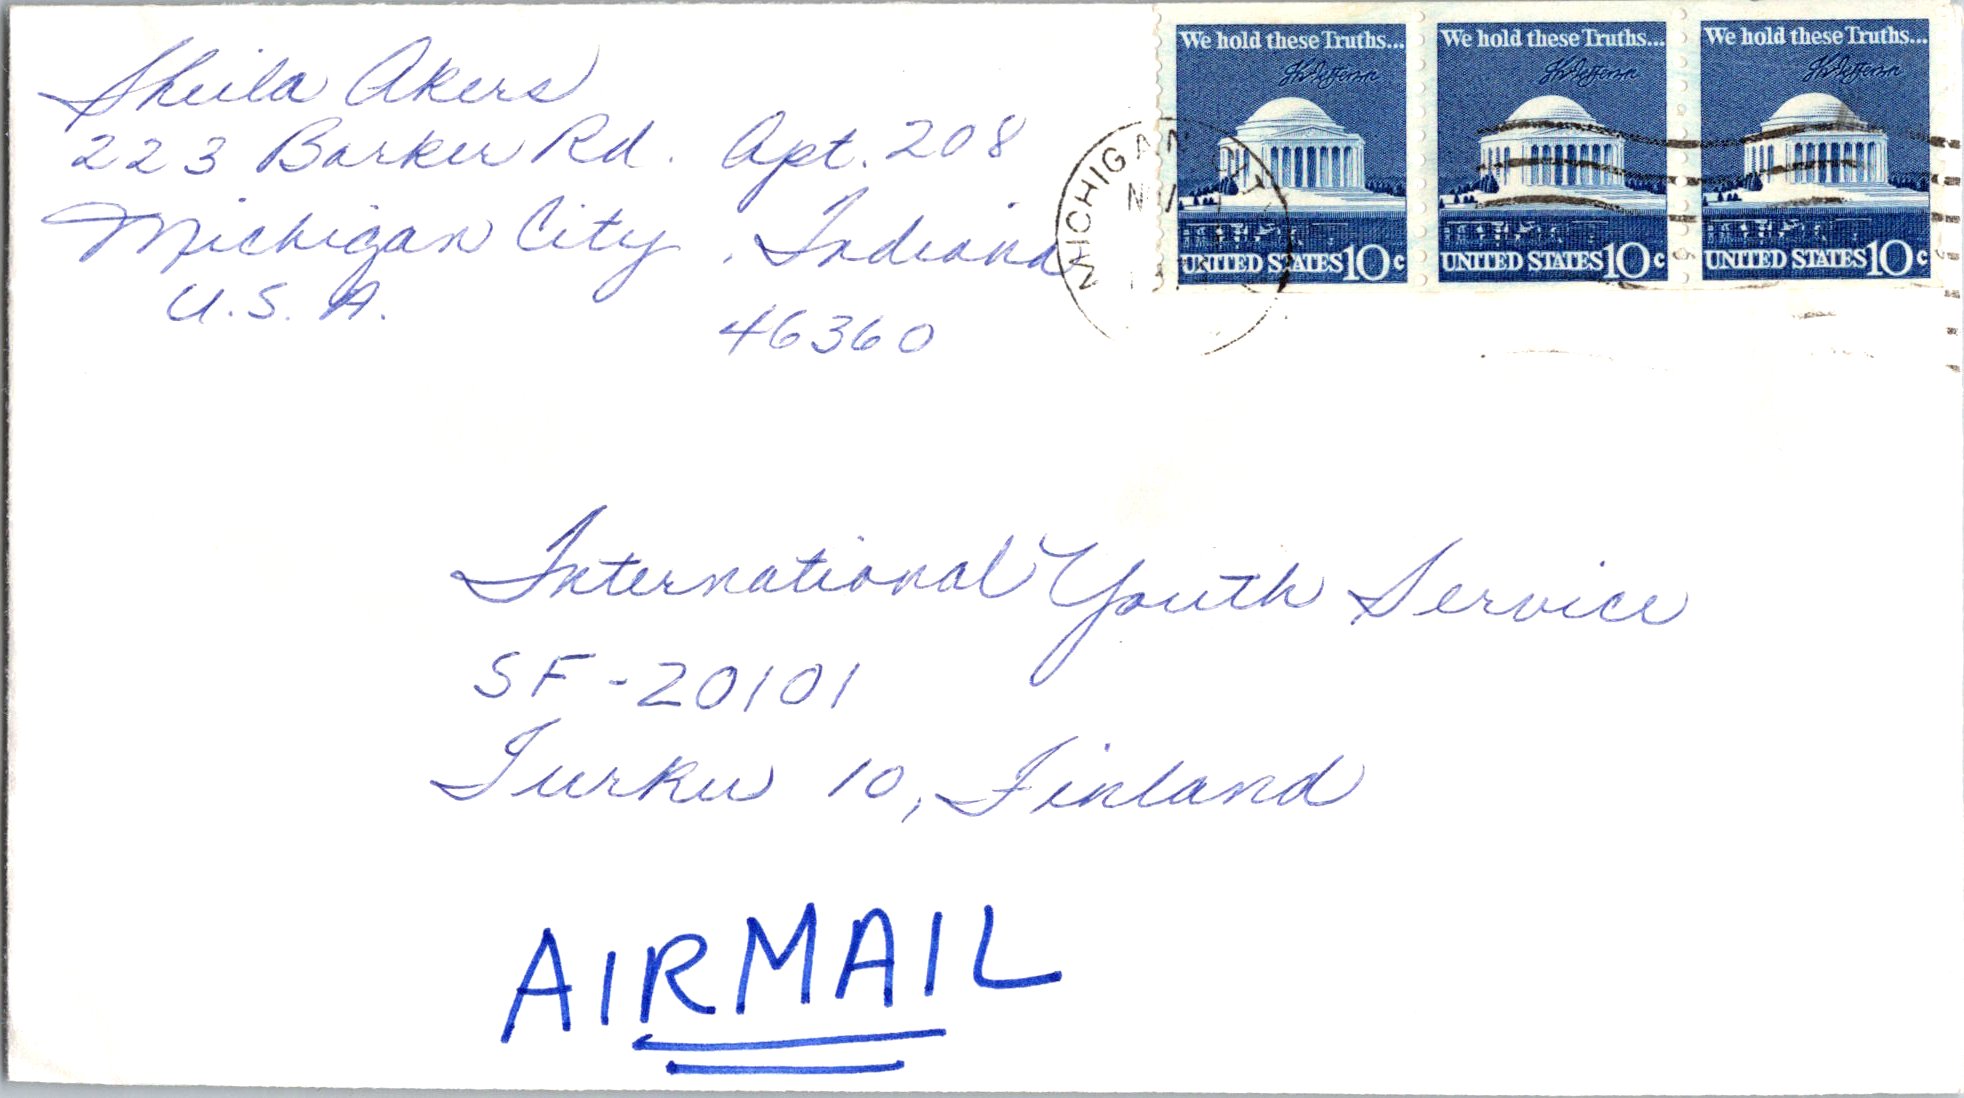 Sheila Akers
223 Barker Rd. Apt. 208
Michigan City, Indiana
U.S.A.
46360
We hold these Truths...
Th Jefferson
UNITED STATES 10c
We hold these Truths...
Th Jefferson
UNITED STATES 10c
We hold these Truths...
Th Jefferson
UNITED STATES 10c
MICHIGAN CITY
International Youth Service
SF-20101
Turku 10, Finland
AIRMAIL